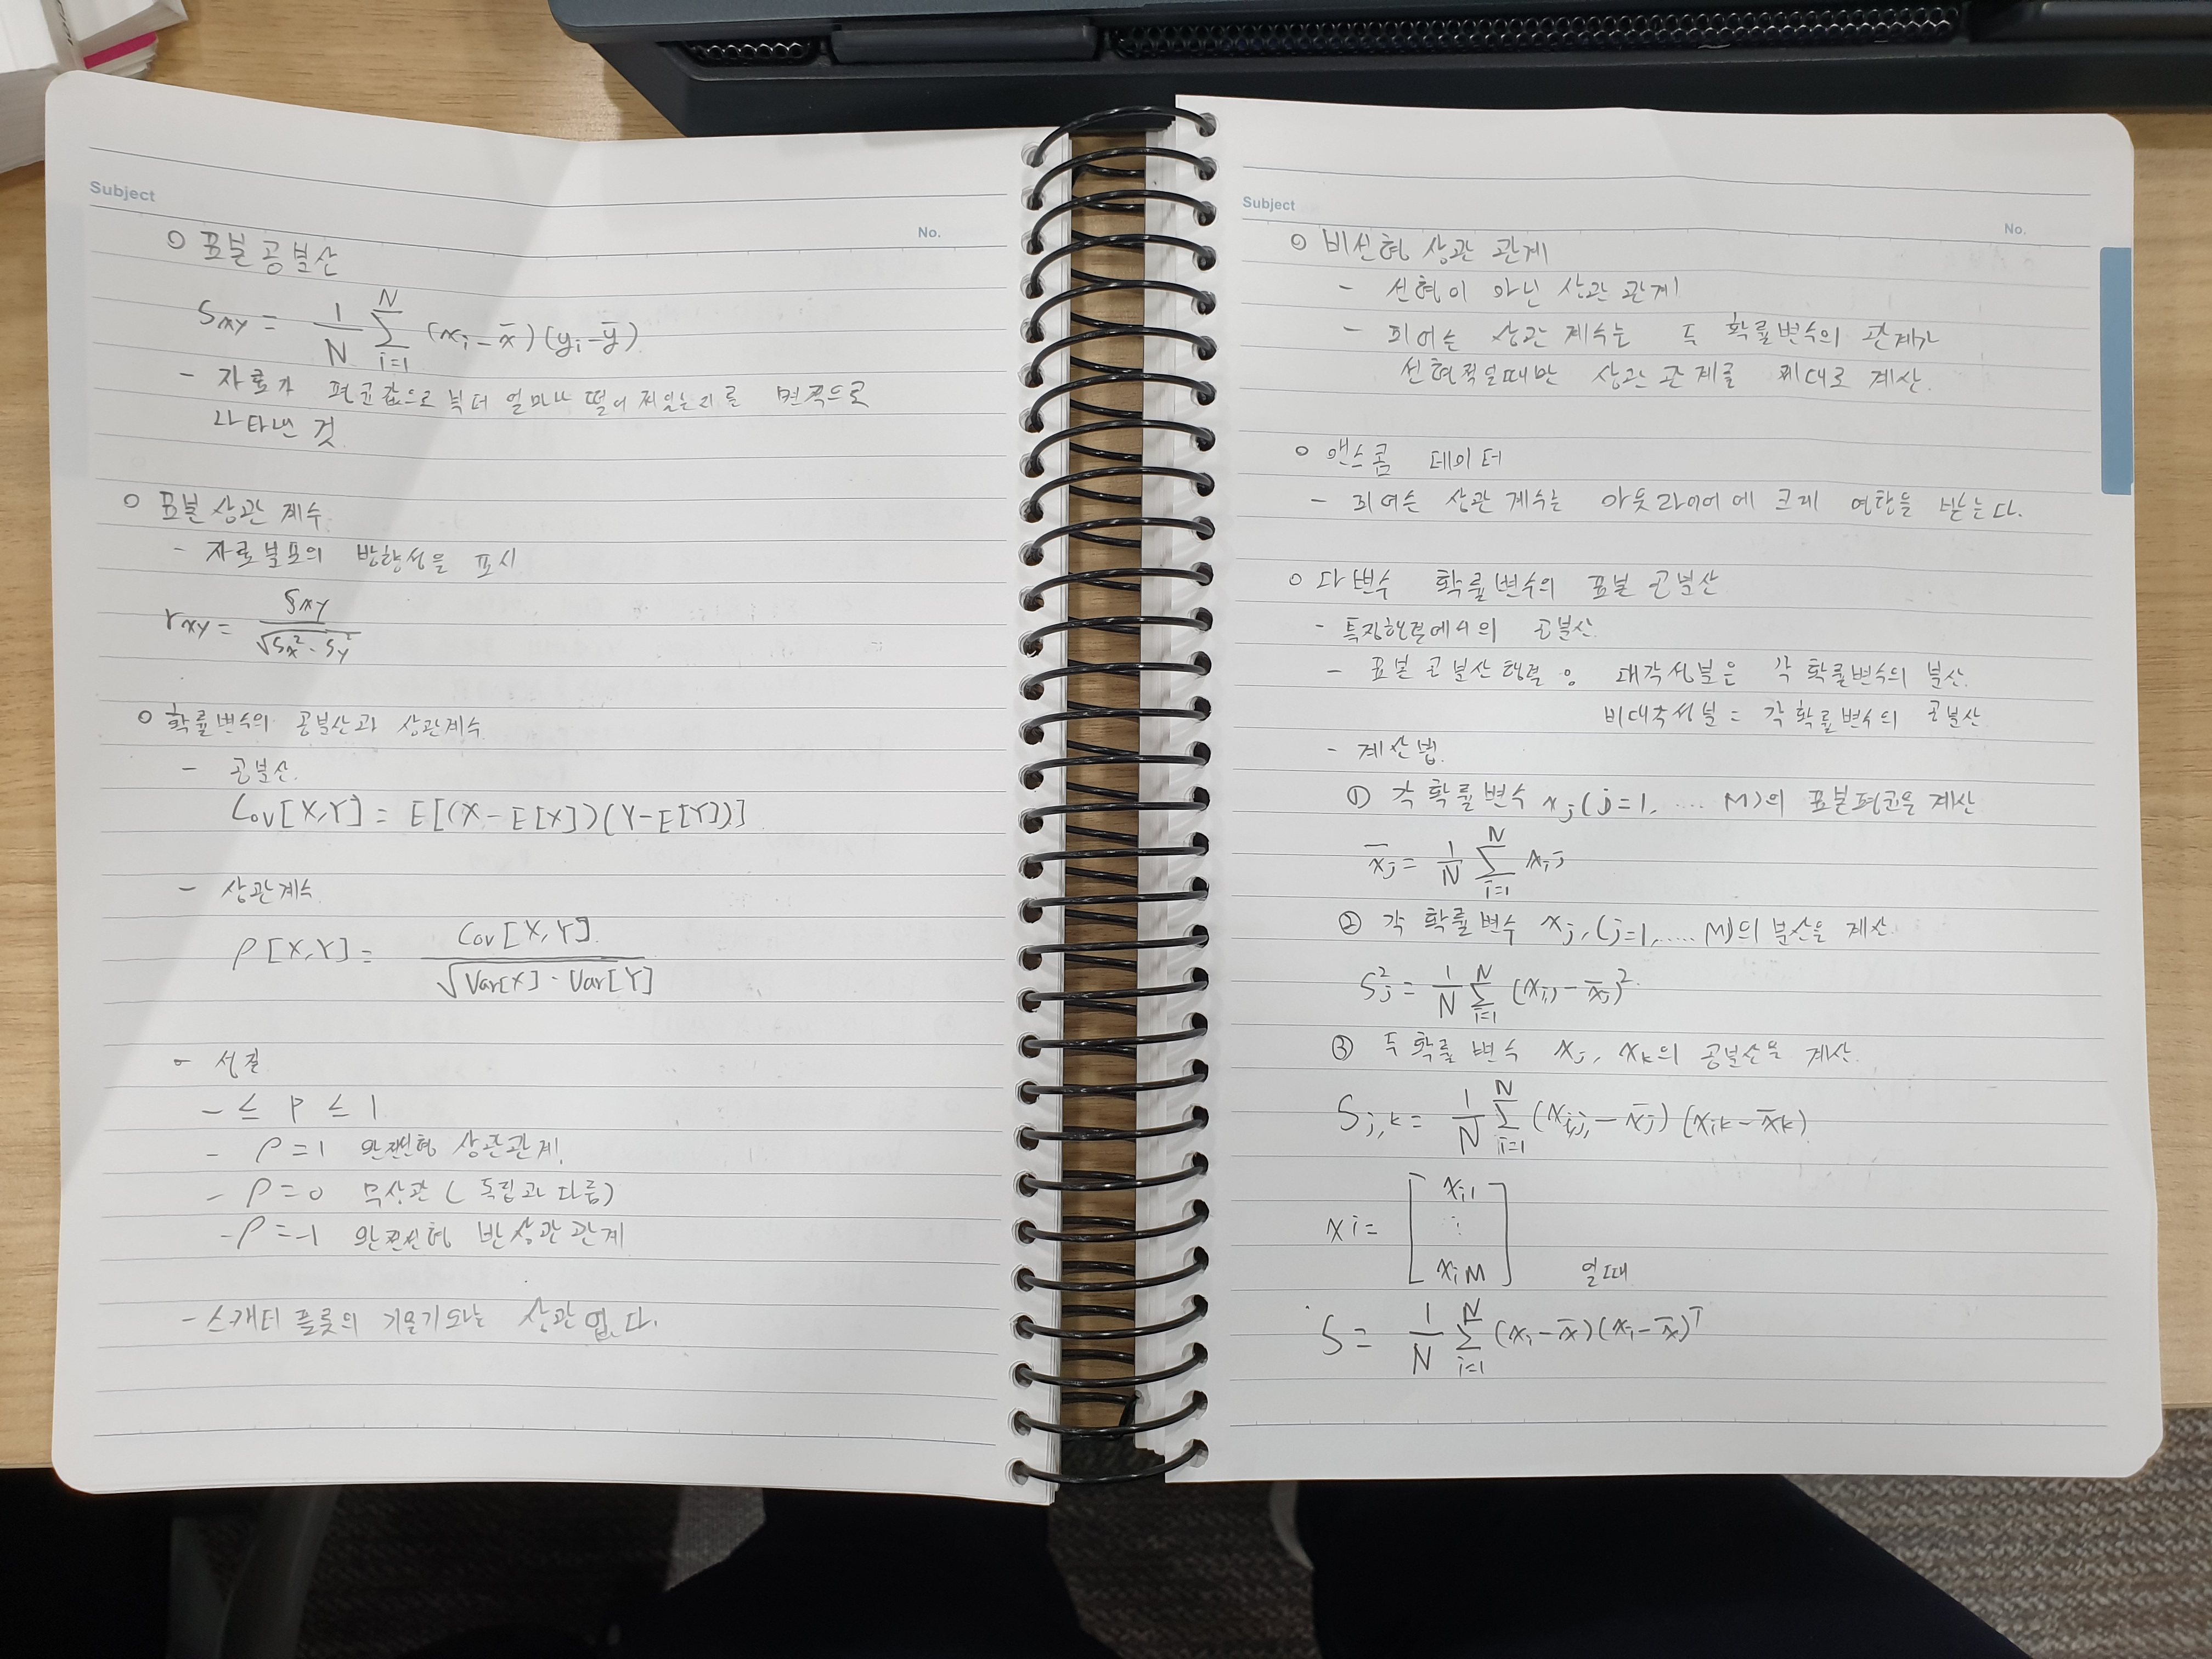 Subject
No.
○ 표본공분산
Sxy = 1/N Σ_{i=1}^{N} (xi - x̄)(yi - ȳ)
- 자료가 평균값으로 부터 얼마나 떨어져있는지를 면적으로
나타낸 것
○ 표본상관 계수
- 자료분포의 방향성을 표시
rxy = Sxy / √(Sx² · Sy²)
○ 확률변수의 공분산과 상관계수
- 공분산.
Cov[X,Y] = E[(X - E[X])(Y - E[Y])]
- 상관계수
ρ[X,Y] = Cov[X,Y] / √(Var[X] · Var[Y])
- 성질
- ≤ ρ ≤ 1
- ρ=1 완전선형 상관관계.
- ρ=0 무상관 (독립과 다름)
- ρ=-1 완전선형 반상관관계
- 스캐터 플롯의 기울기와는 상관 없다.
Subject
No.
○ 비선형 상관 관계
- 선형이 아닌 상관 관계
- 피어슨 상관 계수는 두 확률변수의 관계가
선형적일때만 상관 관계를 제대로 계산.
○ 앤스콤 데이터
- 피어슨 상관 계수는 아웃라이어에 크게 영향을 받는다.
○ 다변수 확률변수의 표본 공분산
- 특징행렬에서의 공분산.
- 표본 공분산행렬 대각성분은 각 확률변수의 분산.
비대각성분 = 각 확률변수의 공분산
- 계산법.
① 각 확률변수 xj (j=1, .... M)의 표본평균을 계산
x̄j = 1/N Σ_{i=1}^{N} xij
② 각 확률 변수 xj, (j=1, ..... M)의 분산을 계산
Sj² = 1/N Σ_{i=1}^{N} (xij - x̄j)²
③ 두 확률 변수 xj, xk의 공분산을 계산.
Sj,k = 1/N Σ_{i=1}^{N} (xi,j - x̄j)(xik - x̄k)
xi = [xi1 ⋮ xiM] 일때
S = 1/N Σ_{i=1}^{N} (xi - x̄)(xi - x̄)ᵀ